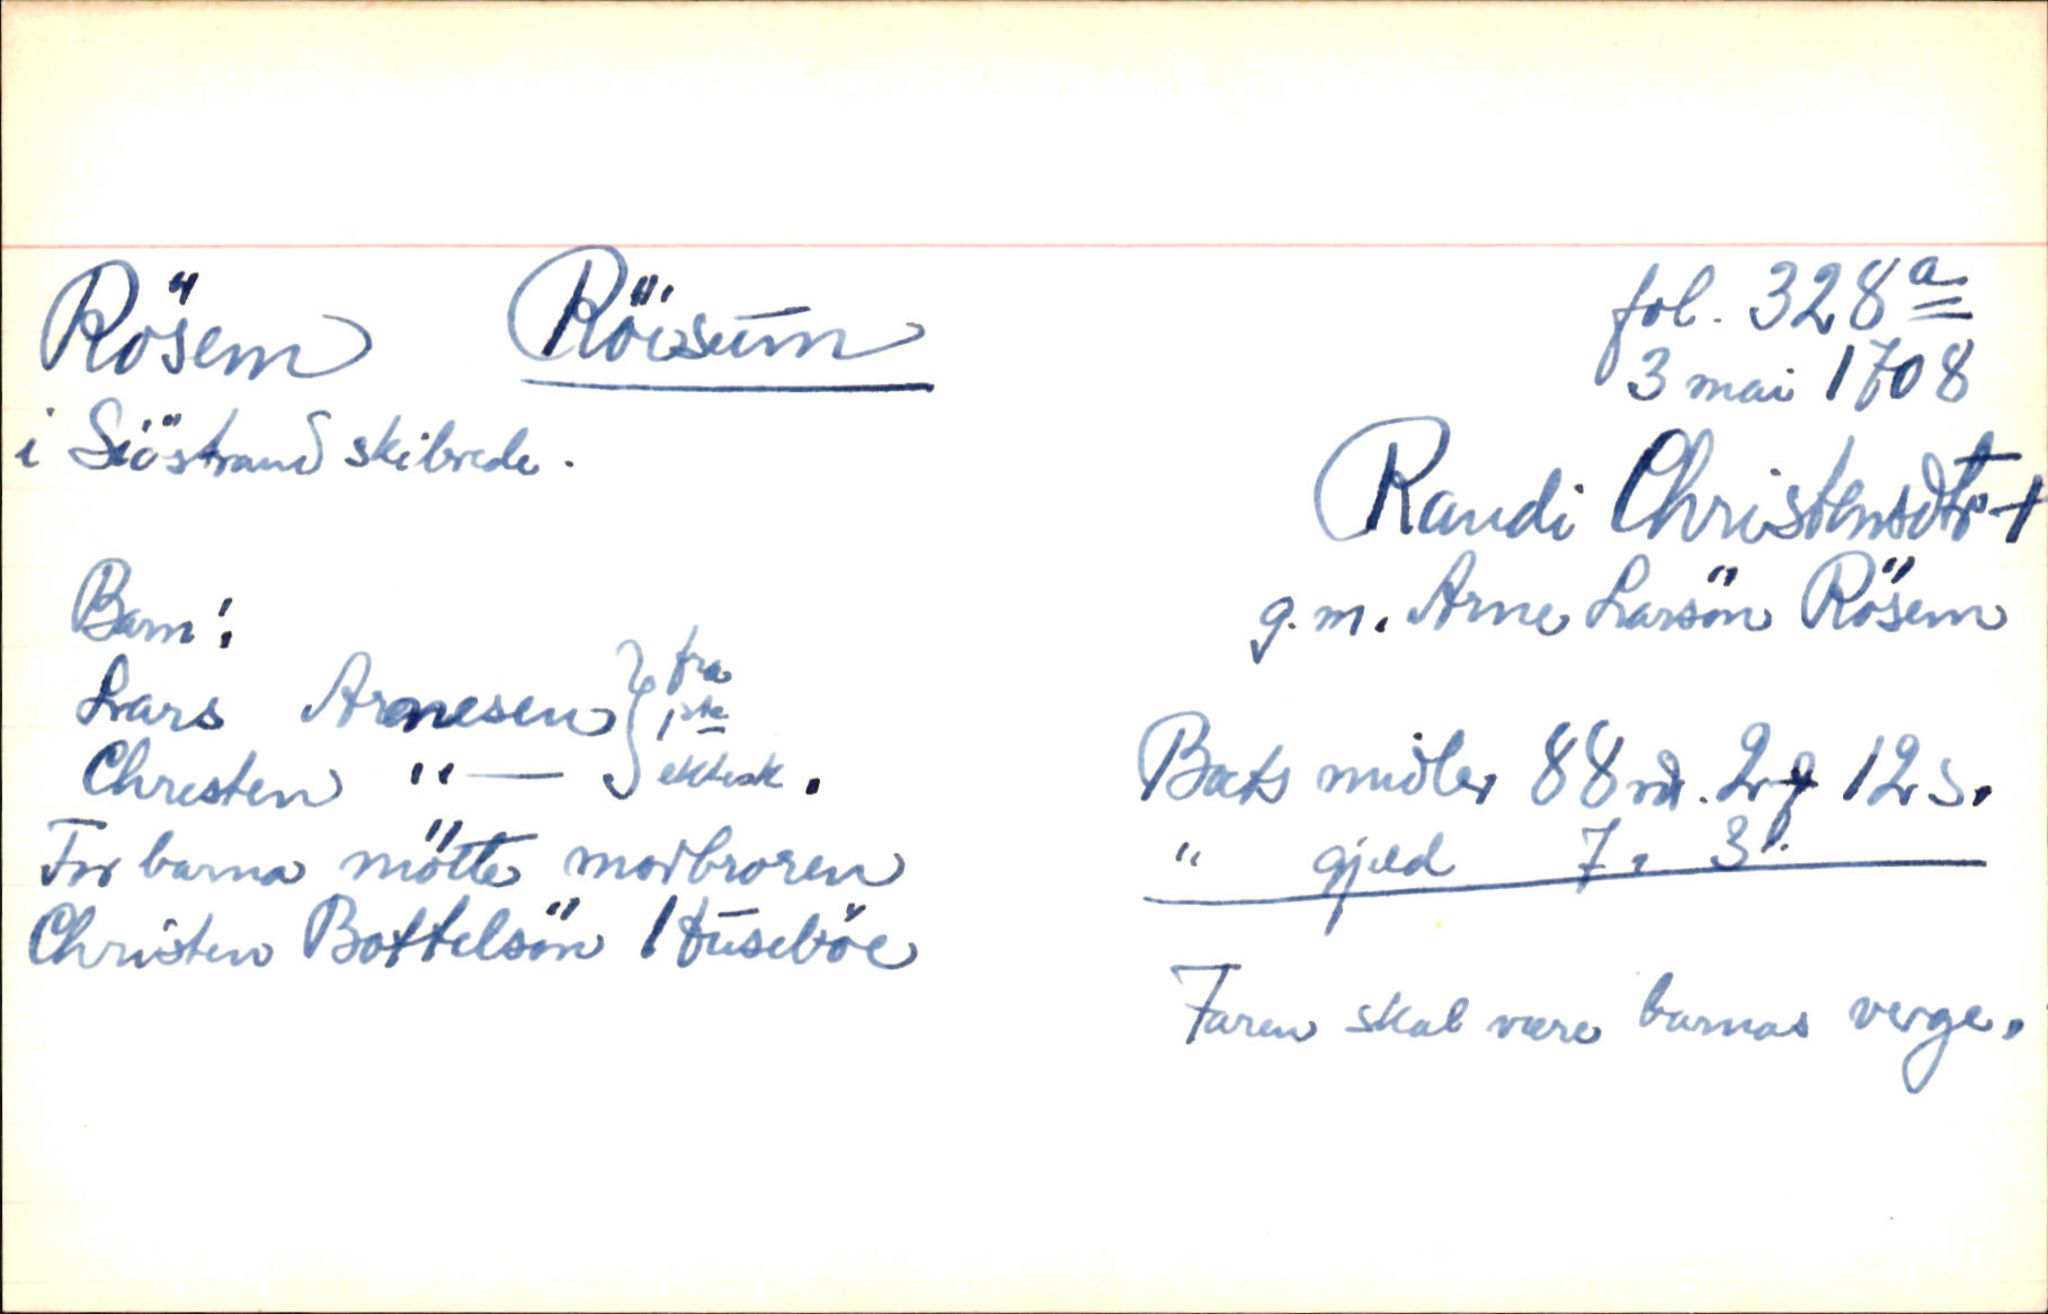 Rösem Röisum
i Siöstrand skibrede.
Barn:
Lars Arnesen } fra
1ste
Christen "— ektesk.
For barna mötte morbroren
Christen Bottelsön Huseböe
fol. 328a
3 mai 1708
Randi Christensdtr +
g. m. Arne Larsön Rösem
Boets midler 88 rd. 2 12 s.
" gjeld 7. 3
Faren skal være barnas verge.